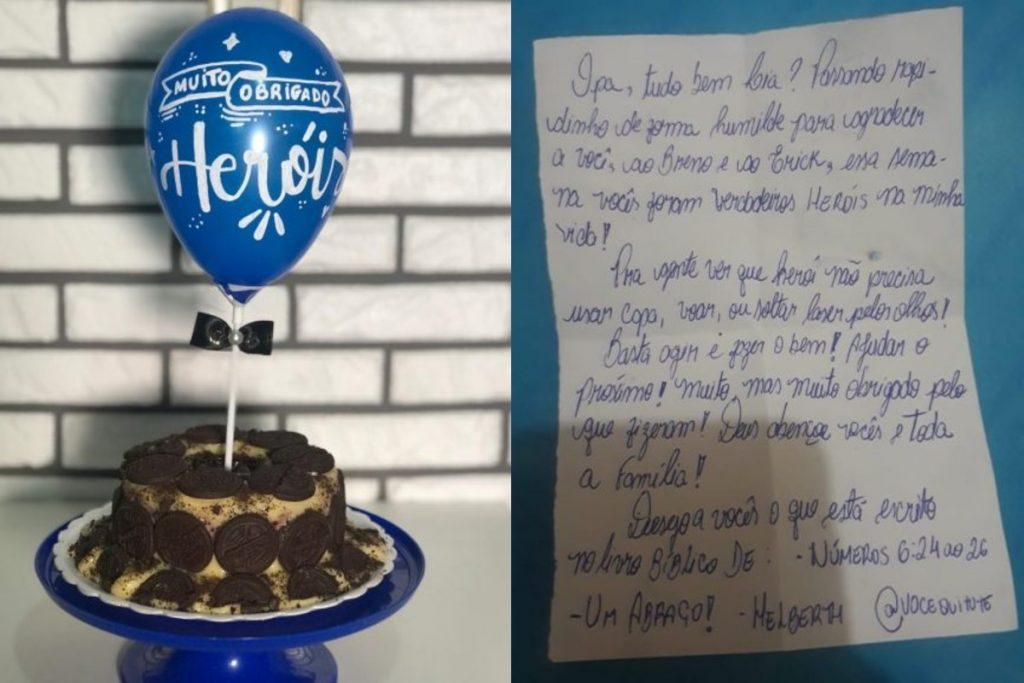 MUITO
OBRIGADO
Heróis
Opa, tudo bem Leia? Passando rapi-
dinho de forma humilde para agradecer
a você, ao Breno e ao Erick, essa sema-
na vocês foram verdadeiros HERÓIS na minha
vida!
Pra gente ver que herói não precisa
usar capa, voar, ou soltar laser pelos olhos!
Basta agir e fazer o bem! Ajudar o
próximo! muito, mas muito obrigado pelo
que fizeram! Deus abençoe vocês e toda
a Família!
Desejo a vocês o que está escrito
no livro BíBlico DE: - NÚMEROS 6:24 ao 26
- UM ABRAÇO! - HELBERTH @VOCEQUITUTE